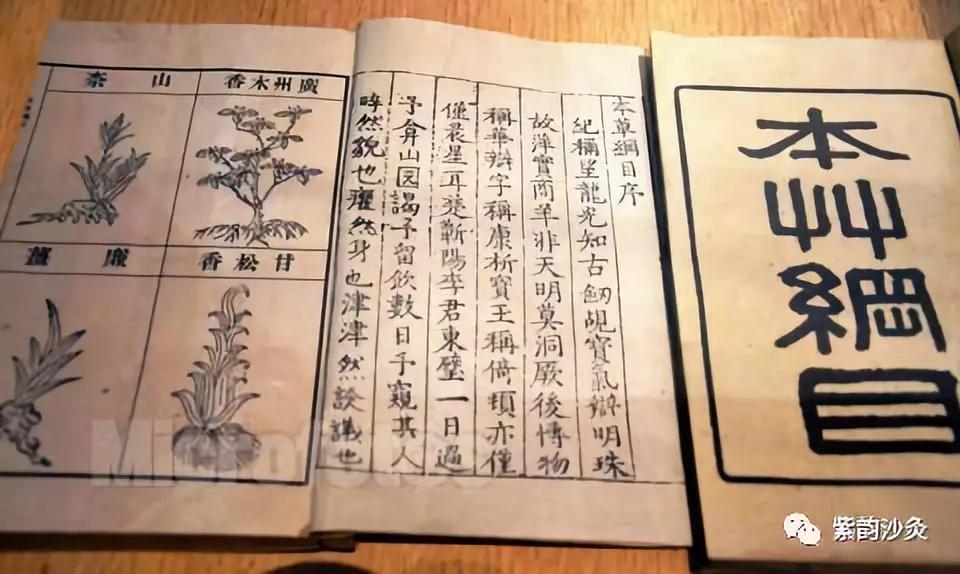 本艸綱目
本草綱目序
紀稱望龍光知古劒覘寶氣辯明珠
故萍實商羊非天明莫洞厥後博物
稱華辯字稱康析寶玉稱倚頓亦僅
僅晨星耳楚蘄陽李君東璧一日過
予弇山园謁予留飲數日予窺其人
睟然貌也癯然身也津津然談議也
廣州木香
山柰
甘松香
廉薑
紫韵沙灸